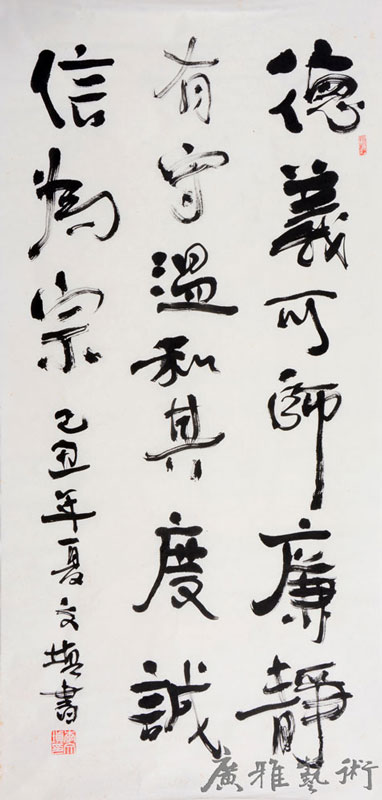 德義可師廉靜
有守溫和其度誠
信為宗
己丑年夏文墳書
廣雅藝術